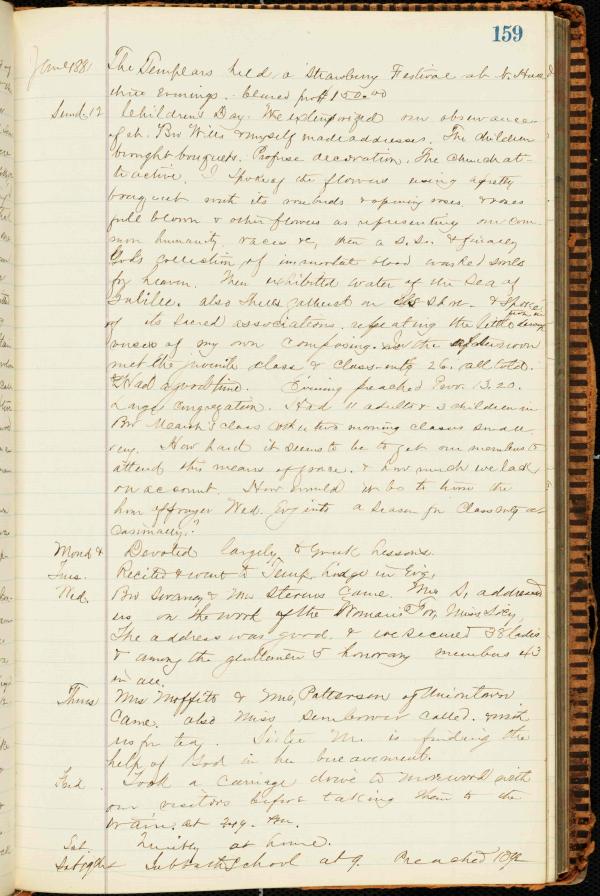 159
June 1881 The Templars held a Strawberry Festival at N. Huse
three evenings. Cleared profit 150.00
Sund. 12 Children's Day. We extemporized our observance
of it. Bro Wills & myself made addresses. The children
brought bouquets. Profuse decoration. The church at-
tractive. I spoke of the flowers using a pretty
bouquet with its rosebuds & opening roses, & roses
full blown & other flowers as representing our com-
mon humanity, races &c, then a S. S. & finally
Gods collection of immortal blood washed souls
for heaven. Then exhibited water of the Sea of
Galilee. also shells gathered on its shore. & spoke
of its sacred associations, repeating the little
verses of my own composing. In the afternoon
met the juvenile class & class-mtg 26. all told.
& Had a good time. Evening preached Prov. 13.20.
Large congregation. Had 11 adults & 3 children in
Bro class other two morning classes small
How hard it seems to be to get our members to
attend this means of grace, & how much we lack
on account. How would it be to turn the
hour of prayer Wed. Evg into a season for Class mtg oc-
casionally?
Mond & Devoted largely to Greek Lessons.
Tues. Recited & went to Temp. Lodge in Evg.
Wed. Bro & Mrs Stevens came. Mrs S. addressed
us on the work of the Woman's For. Miss. Socy.
The address was good. & we secured 38 ladies
& among the gentlemen 5 honorary members 43
in all.
Thurs Mrs Moffitt & Mrs. Patterson of Uniontown
came. also Miss called. & with
us for tea. Sister M. is finding the
help of God in her bereavement.
Frid. Took a carriage drive to Morewood with
our visitors before taking them to the
train at
Sat. Quietly at home.
Sab 19th Sabbath School at 9. Preached